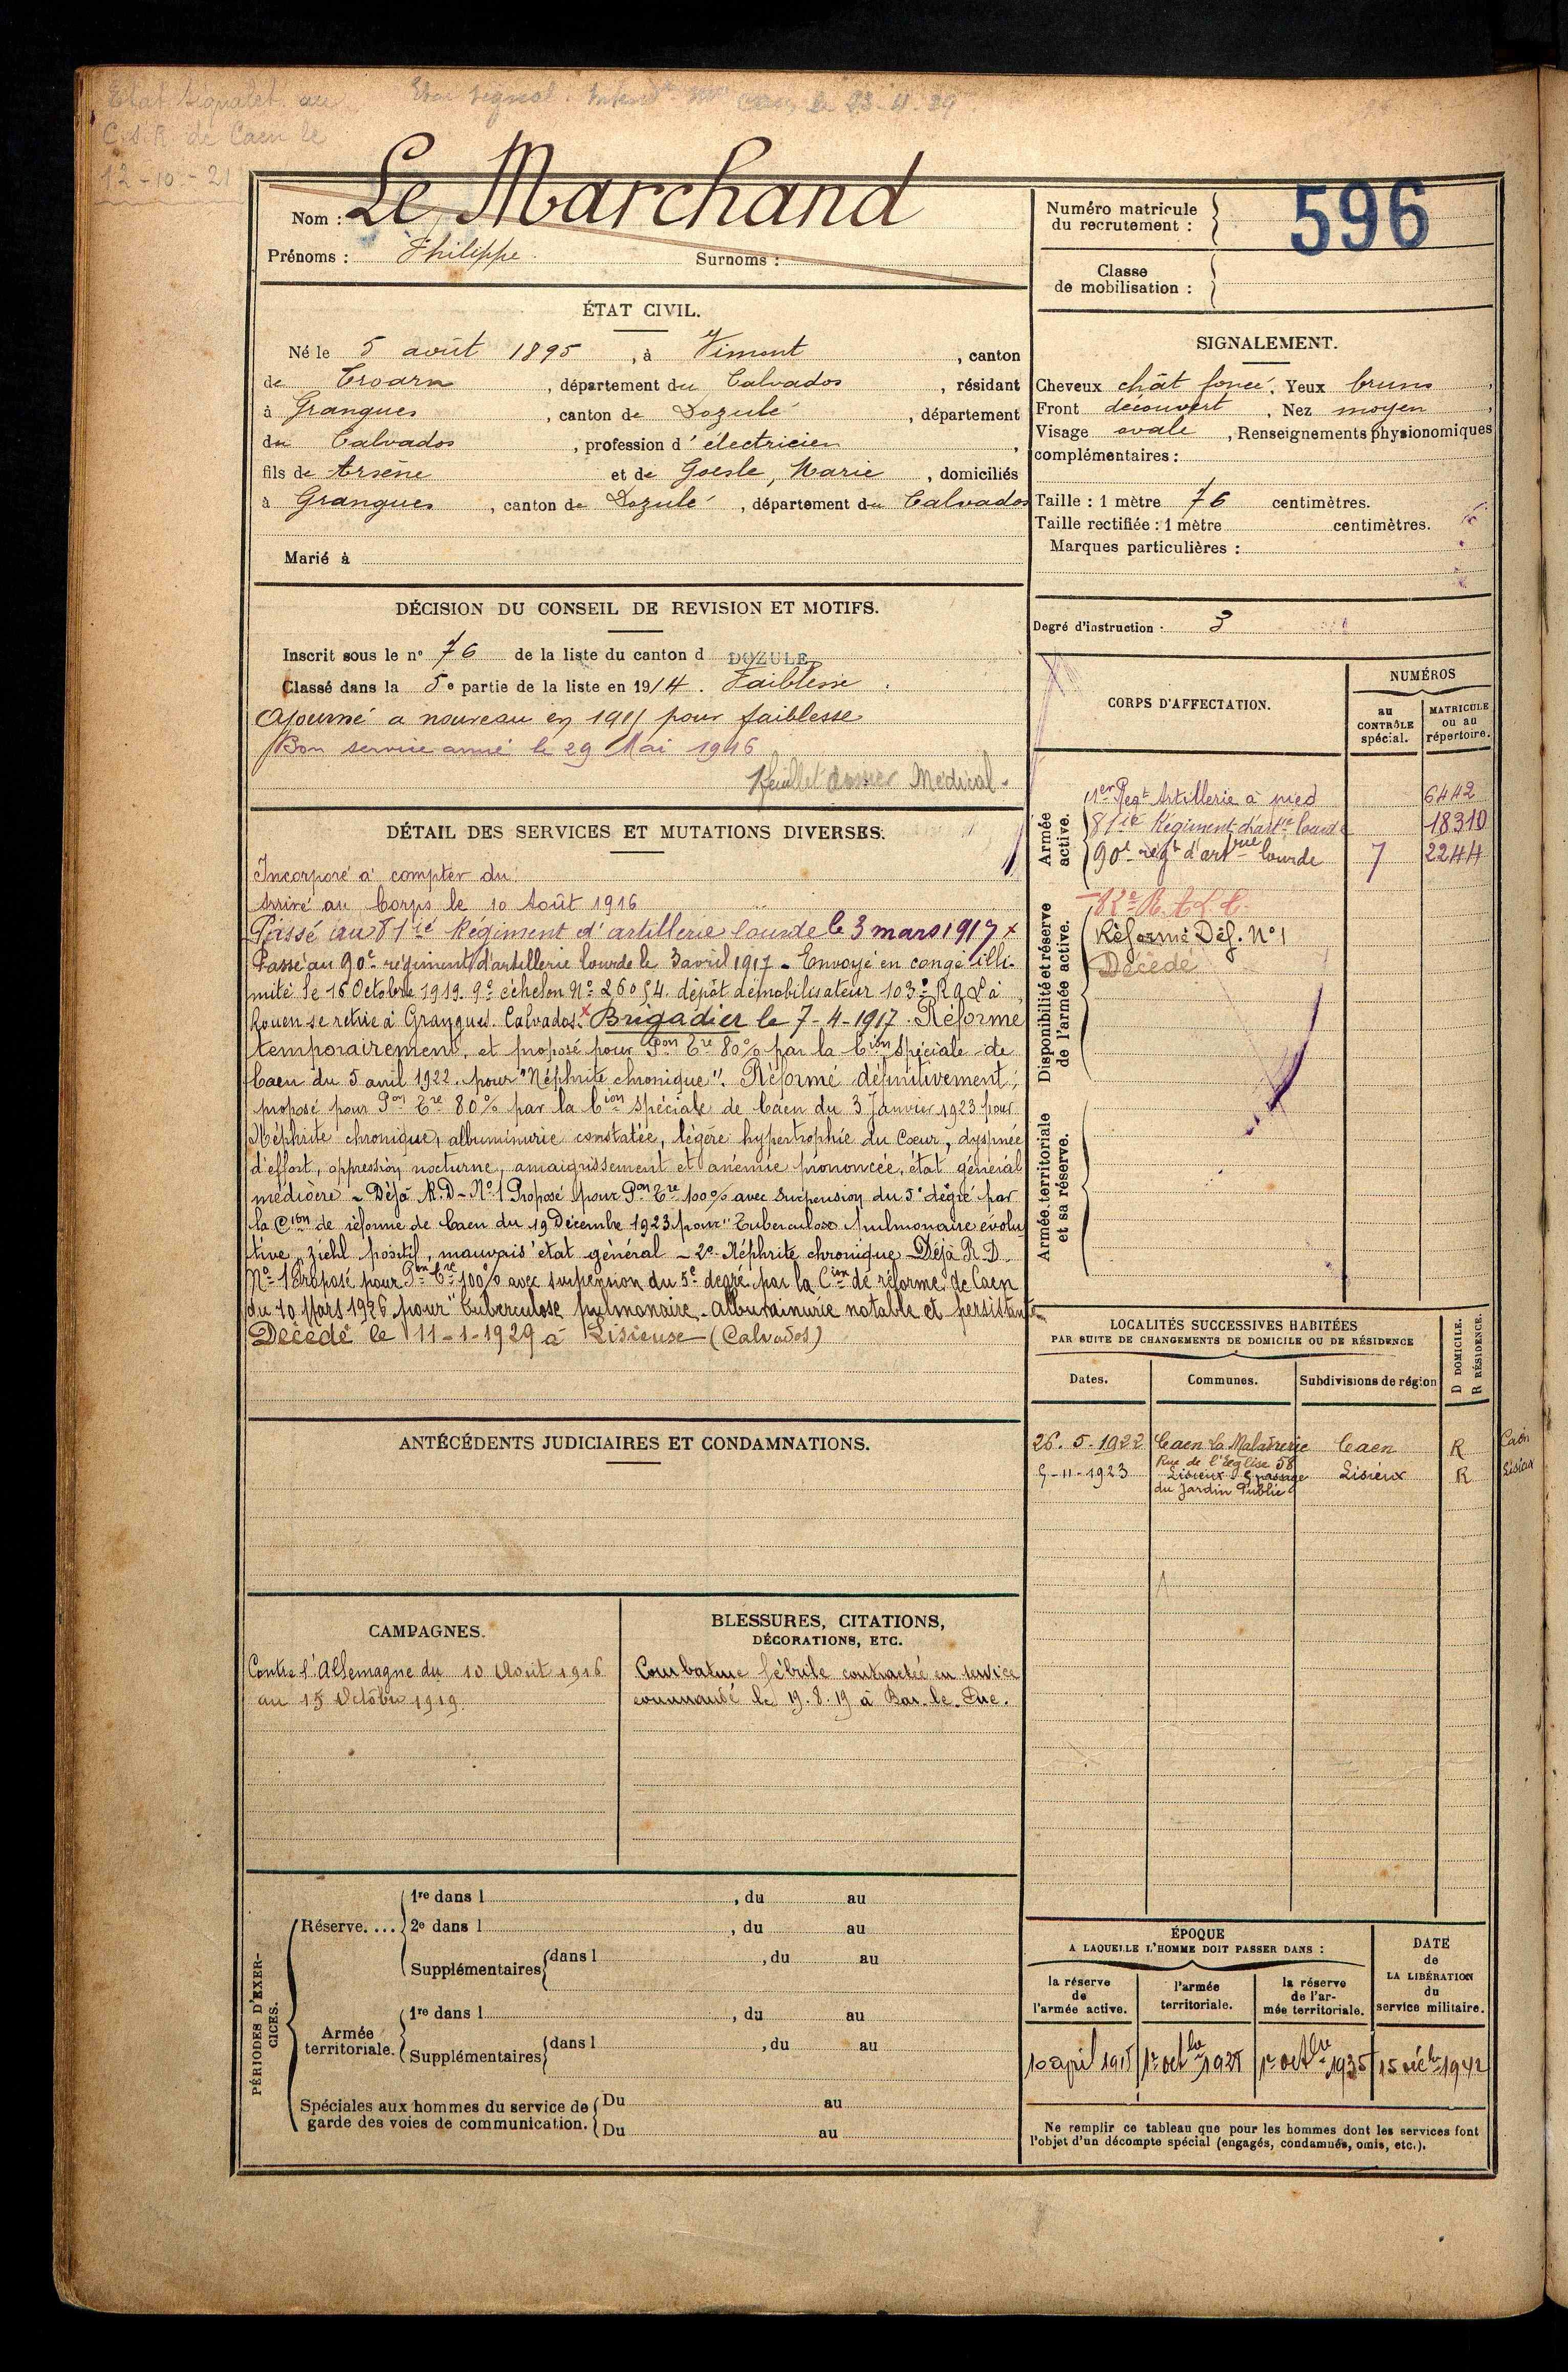 Etat signalet. au
C.S.R. de Caen le
12-10-21
Etat signal. Intend. Caen le 23-11-29
Nom : Le Marchand
Prénoms : Philippe. Surnoms :
ÉTAT CIVIL.
Né le 5 août 1895, à Vimont, canton
de Troarn, département du Calvados, résidant
à Grangues, canton de Dozulé, département
du Calvados, profession d'électricien,
fils de Arsène et de Goesle, Marie, domiciliés
à Grangues, canton de Dozulé, département du Calvados
Marié à
DÉCISION DU CONSEIL DE REVISION ET MOTIFS.
Inscrit sous le n° 76 de la liste du canton d DOZULE
Classé dans la 5e partie de la liste en 1914. Faiblesse.
Ajourné a nouveau en 1915 pour faiblesse
Bon service armé le 29 Mai 1916
Feuillet Médical.
DÉTAIL DES SERVICES ET MUTATIONS DIVERSES.
Incorporé à compter du
Arrivé au Corps le 10 Août 1916
Passé au 81ie Régiment d'artillerie lourde le 3 mars 1917 x
Passé au 90e régiment d'artillerie lourde le 3 avril 1917 - Envoyé en congé illi-
mité le 16 Octobre 1919. 9e échelon N° 26054. dépôt démobilisateur 103e R.A.L. à
Rouen se retire à Grangues. Calvados. x Brigadier le 7-4-1917. Réformé
temporairement, et proposé pour Pon Tre 80% par la Cion spéciale de
Caen du 5 avril 1922. pour "Néphrite chronique". Réformé définitivement,
proposé pour Pon Tre 80% par la Cion spéciale de Caen du 3 Janvier 1923 pour
Néphrite chronique, albuminurie constatée, légère hypertrophie du Cœur, dyspnée
d'effort, oppression nocturne, amaigrissement et anémie prononcée, état général
médiocre - Déjà R.D - N° 1 Proposé pour Pon Tre 100% avec suspension du 5e degré par
la Cion de réforme de Caen du 19 Décembre 1923 pour "Tuberculose pulmonaire évolu
tive, ziehl positif, mauvais état général - 2e Néphrite chronique Déjà R.D.
N° 1 Proposé pour Pon Tre 100% avec suspension du 5e degré par la Cion de réforme de Caen
du 10 Mars 1926 pour "Tuberculose pulmonaire. Albuminurie notable et persistante
Décédé le 11-1-1929 à Lisieuse (Calvados)
ANTÉCÉDENTS JUDICIAIRES ET CONDAMNATIONS.
CAMPAGNES.
Contre l'Allemagne du 10 Août 1916
au 15 Octobre 1919.
BLESSURES, CITATIONS,
DÉCORATIONS, ETC.
Courbature fébrile contractée en service
commandé le 19.8.19 à Bar-le-Duc.
PÉRIODES D'EXER-
CICES.
Réserve....
1re dans l , du au
2e dans l , du au
Supplémentaires dans l , du au
Armée
territoriale.
1re dans l , du au
Supplémentaires dans l , du au
Spéciales aux hommes du service de
garde des voies de communication.
Du au
Du au
Numéro matricule
du recrutement :
596
Classe
de mobilisation :
SIGNALEMENT.
Cheveux chât foncé. Yeux bruns,
Front découvert, Nez moyen,
Visage ovale, Renseignements physionomiques
complémentaires :
Taille : 1 mètre 76 centimètres.
Taille rectifiée : 1 mètre centimètres.
Marques particulières :
Degré d'instruction : 3
CORPS D'AFFECTATION.
NUMÉROS
au
CONTRÔLE
spécial.
MATRICULE
ou au
répertoire.
Armée
active.
1er Regt Artillerie à pied 6442
81ie Régiment d'artie lourde 18310
90e régt d'artrie lourde 7 2244
Disponibilité et réserve
de l'armée active.
Réformé Déf. N° 1
Décédé
Armée territoriale
et sa réserve.
LOCALITÉS SUCCESSIVES HABITÉES
PAR SUITE DE CHANGEMENTS DE DOMICILE OU DE RÉSIDENCE
Dates.
Communes.
Subdivisions de région
D DOMICILE.
R RÉSIDENCE.
26.5.1922 Caen La Maladrerie Caen R Caen
Rue de l'Eglise 58
5-11-1923 Lisieux 5 passage Lisieux R Lisieux
du Jardin Public
ÉPOQUE
A LAQUELLE L'HOMME DOIT PASSER DANS :
la réserve
de
l'armée active.
l'armée
territoriale.
la réserve
de l'ar-
mée territoriale.
DATE
de
LA LIBÉRATION
du
service militaire.
10 april 1918 1er octbre 1928 1er octbre 1935 15 décbre 1942
Ne remplir ce tableau que pour les hommes dont les services font
l'objet d'un décompte spécial (engagés, condamnés, omis, etc.).